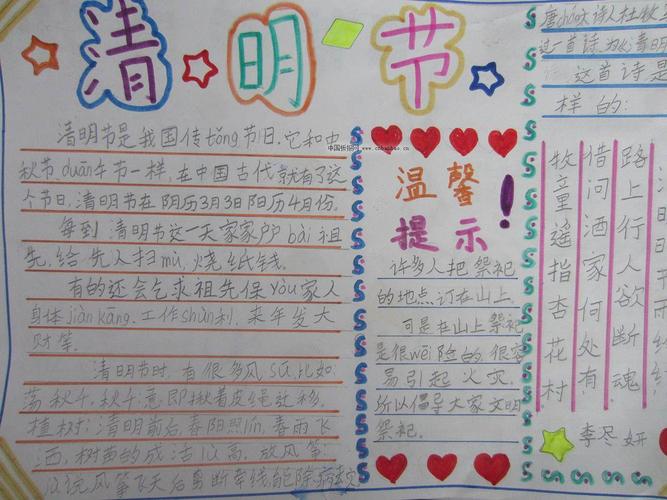 清明节
清明节是我国传tǒng节日。它和中
秋节duān午节一样，在中国古代就有了这
个节日，清明节在阴历3月3日阳历4月份。
每到清明节这一天家家户户bài祖
先，给先人扫mù，烧纸钱。
有的还会乞求祖先保yòu家人
身体jiàn kāng，工作shùn利，来年发大
财等。
清明节时，有很多风sú，比如
荡秋千，秋千意，即揪着皮绳迁移。
植树：清明前后，春阳照lín，春雨飞
洒，树苗的成活
高，放风筝
温馨
提示！
许多人把祭祀
的地点订在山上。
可是在山上祭祀
是很wēi险的很容
易引起火灾。
所以倡导大家文明
祭祀。
唐cháo大诗人杜牧
这首诗是
样的：
路上行人欲断魂
借问酒家何处有
牧童遥指杏花村